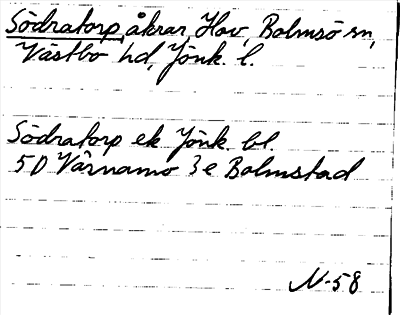 Södratorp, åkrar, Hov, Bolmsö sn,
Västbo hd, Jönk. l.
Södratorp ek Jönk. bl.
5D Värnamo 3e Bolmstad
N-58